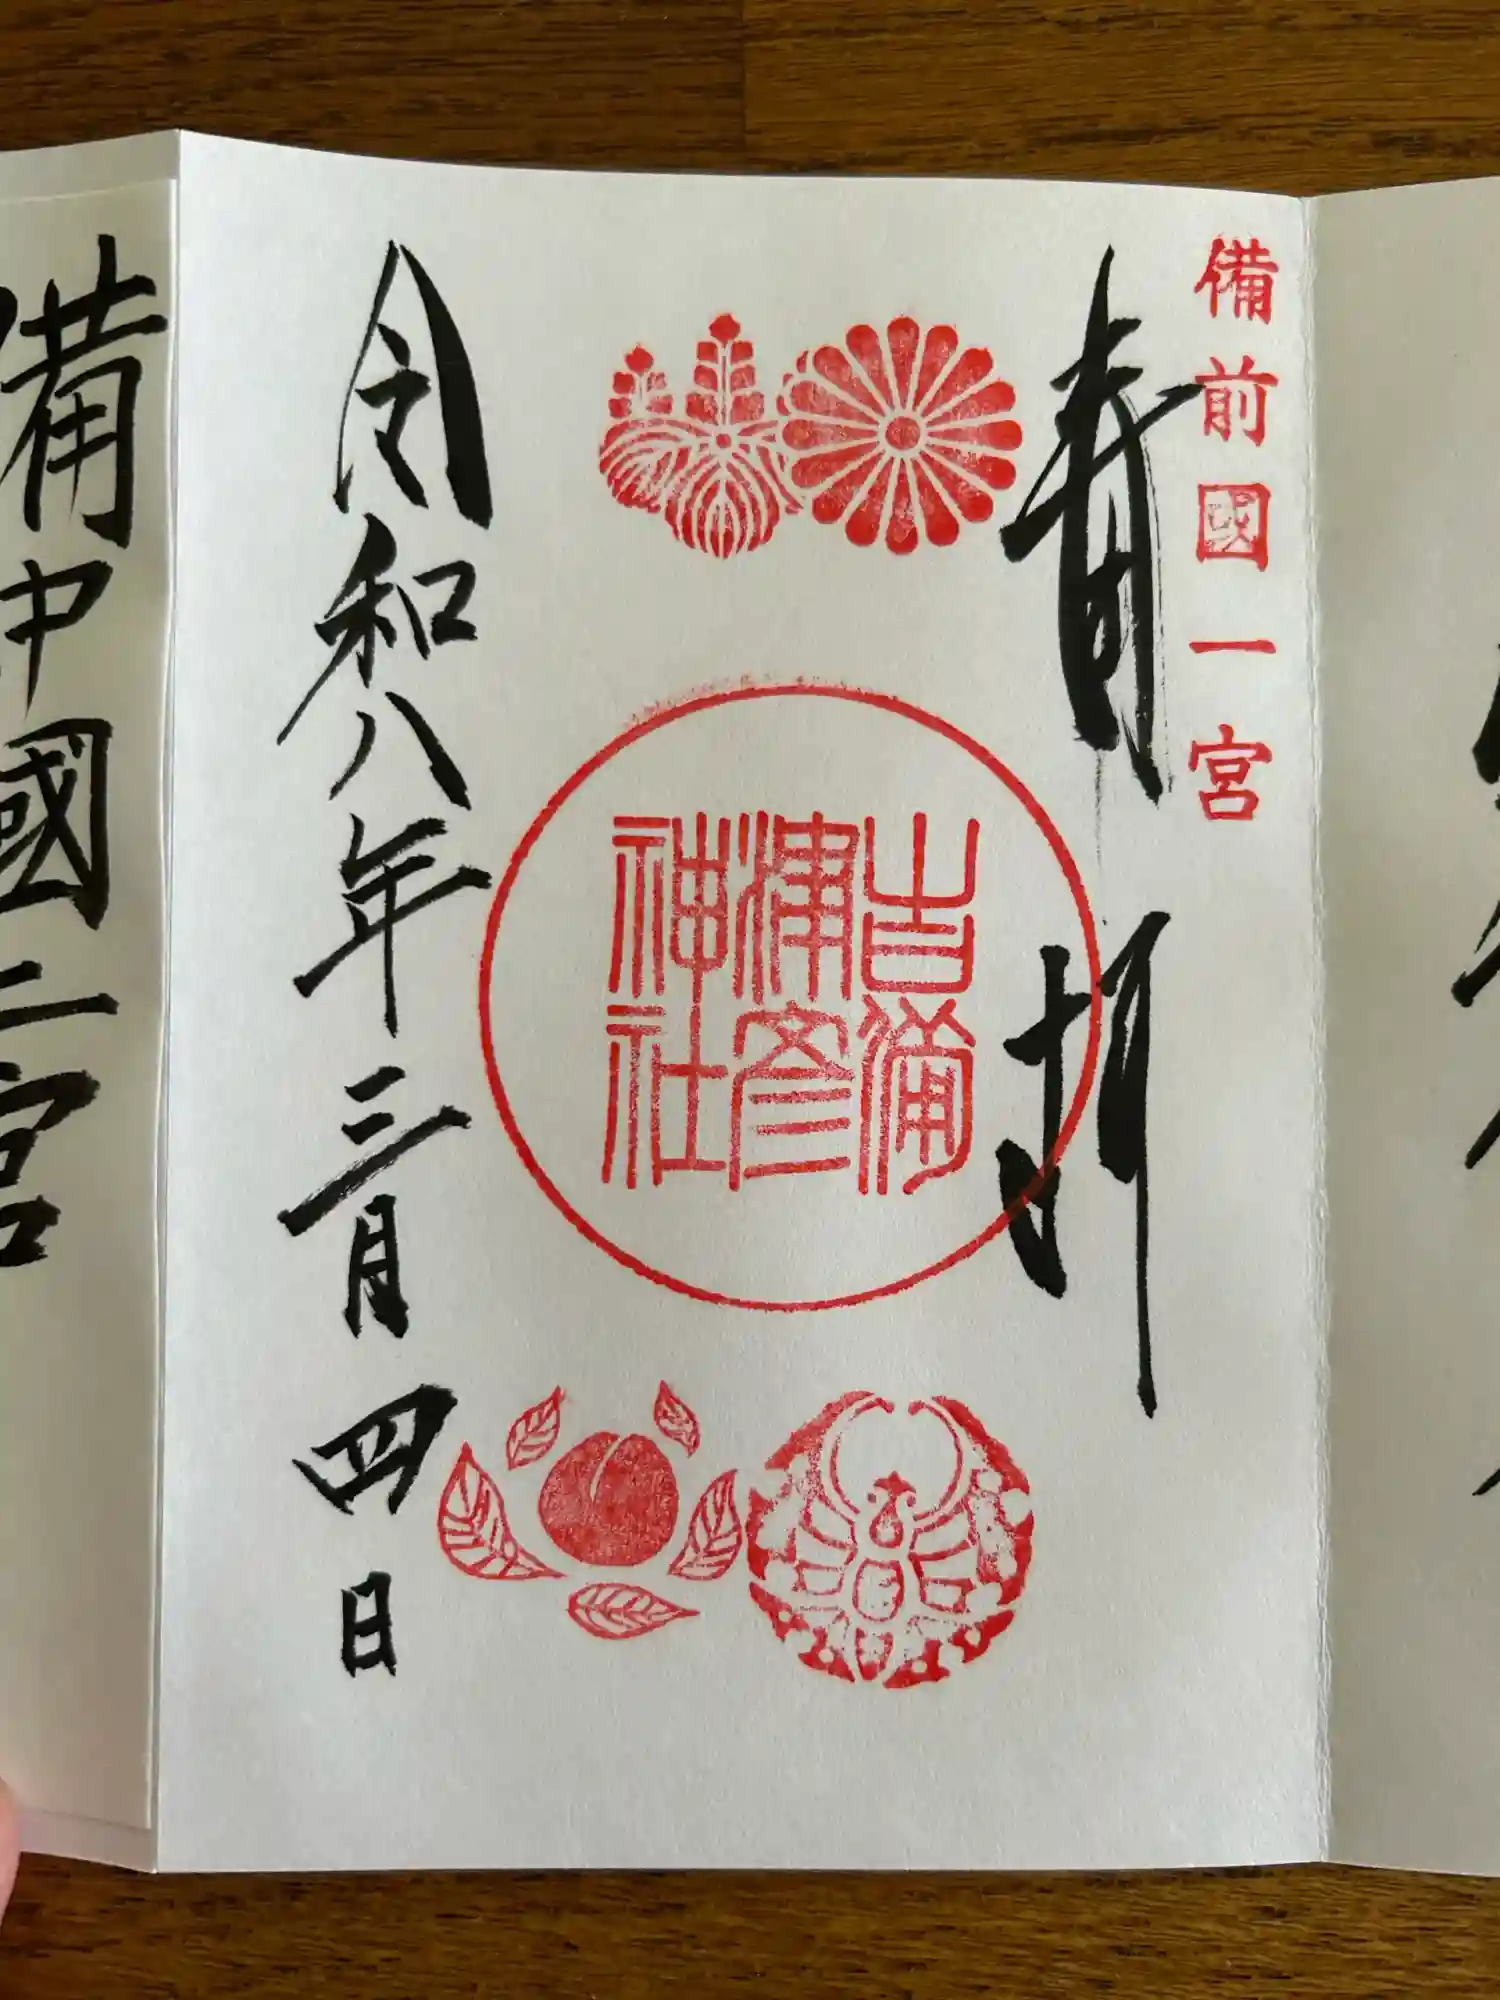 備前國一宮
奉拝
吉備津彦神社
令和八年三月四日
備中國二宮